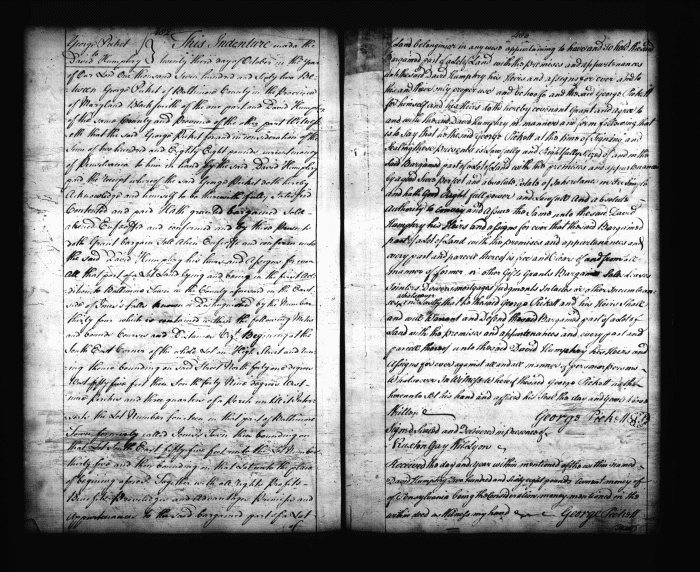 George Picket
to
David Humphry
This Indenture made the
twenty third day of October in the Year
of Our Lord One thousand Seven hundred and Sixty two Be-
tween George Picket of Baltimore County in the Province
of Maryland Black smith of the one part and David Humphry
of the same County and Province of the other part Witness
eth that the said George Picket for and in consideration of the
Sum of two hundred and Eighty Eight pounds current money
of Pensilvania to him in hand by the said David Humphry
and the receipt whereof the said George Picket doth hereby
Acknowledge and himself to be therewith fully Satisfied
Contented and paid Hath granted bargained Sold
aliened Enfeoffed and confirmed and by these presents
doth Grant bargain Sell Alien Enfeoff and confirm unto
the Said David Humphry his heirs and Assigns for ever
All that part of a Lot lying and being in the first Ad-
dition to Baltimore Town in the County aforesaid on the East
side of Jones's falls known & Distinguished by the Number
thirty four which is contained within the following Metes
and bounds Courses and Distances Viz. Beginning at the
South East Corner of the whole Lot on High Street and run
ing thence bounding on said Street North forty one degrees
West fifty five feet then South forty Nine degrees West
nine Perches and three quarters of a Perch until it Intersects
with the Lot Number fourteen in that part of Baltimore
Town formerly called Jones's Town then bounding on
that Lot South East fifty five feet unto the Lot Number
thirty five and then bounding on that Lot unto the place
of beginning aforesaid Together with all Rights Profits
Benefits Priviledges and advantages Premises and
Appurtenances to the said bargained part of a Lot
of
of Land belonging or in any wise appertaining to have and to hold the said
Bargained part of a lot of Land with the premises and appurtenances
unto the said David Humphry his Heirs and assigns for ever and to
his and their only proper use and behoof and the said George Pickett
for himself and his Heirs doth hereby covenant Grant and agree to
and with the said David Humphry in manner and form following that
is to say that he the said George Pickett at the time of Signing and
Sealing these presents is Lawfully and Rightfully Seized of and in the
said Bargained part of a lot of Land with the premises and appurtenances
by a good Sure perfect and absolute Estate of Inheritance in Fee Simple
And hath Good Right full power and Lawfull and absolute
Authority to Convey and assure the Same unto the said David
Humphry his Heirs and assigns for ever that the said Bargained
part of a lot of Land with the premises and appurtenances and
every part and parcel thereof is free and Clear of and from all
manner of former or other Gifts Grants Bargains Sales Leases
Jointers Dowers mortgages Judgments or other Incumbrances
whatsoever
and lastly that the said George Pickett and his Heirs Shall
and will Warrant and Defend the said Bargained part of a lot of
Land with the premises and appurtenances and every part and
parcel thereof unto the said David Humphry his Heirs and
Assigns for ever against all and all manner of Person or persons
Whatsoever In Witness whereof the said George Pickett hath
hereunto set his hand and affixed his Seal the day and Year above
Written
George Pickett
Signed Sealed and Delivered in Presence of
Received the day and Year within mentioned of the within named
David Humphry Two hundred and Eighty Eight pounds Current money of
of Pensylvania being the Consideration money mentioned in the
within deed as Witness my hand
George Pickett